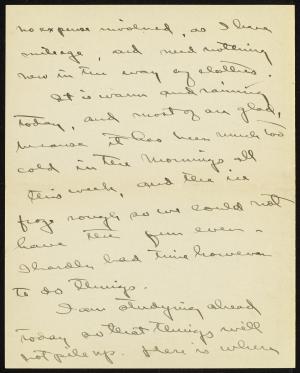 no expense involved, as I have
mileage, and need nothing
new in the way of clothes.
It is warm and raining
today, and most of am glad,
because it has been much too
cold in the mornings all
this week, and the ice
froze rough so we could not
have the fun even.
I hardly had time however
to do things.
I am studying ahead
today so that things will
not pile up. Here is where